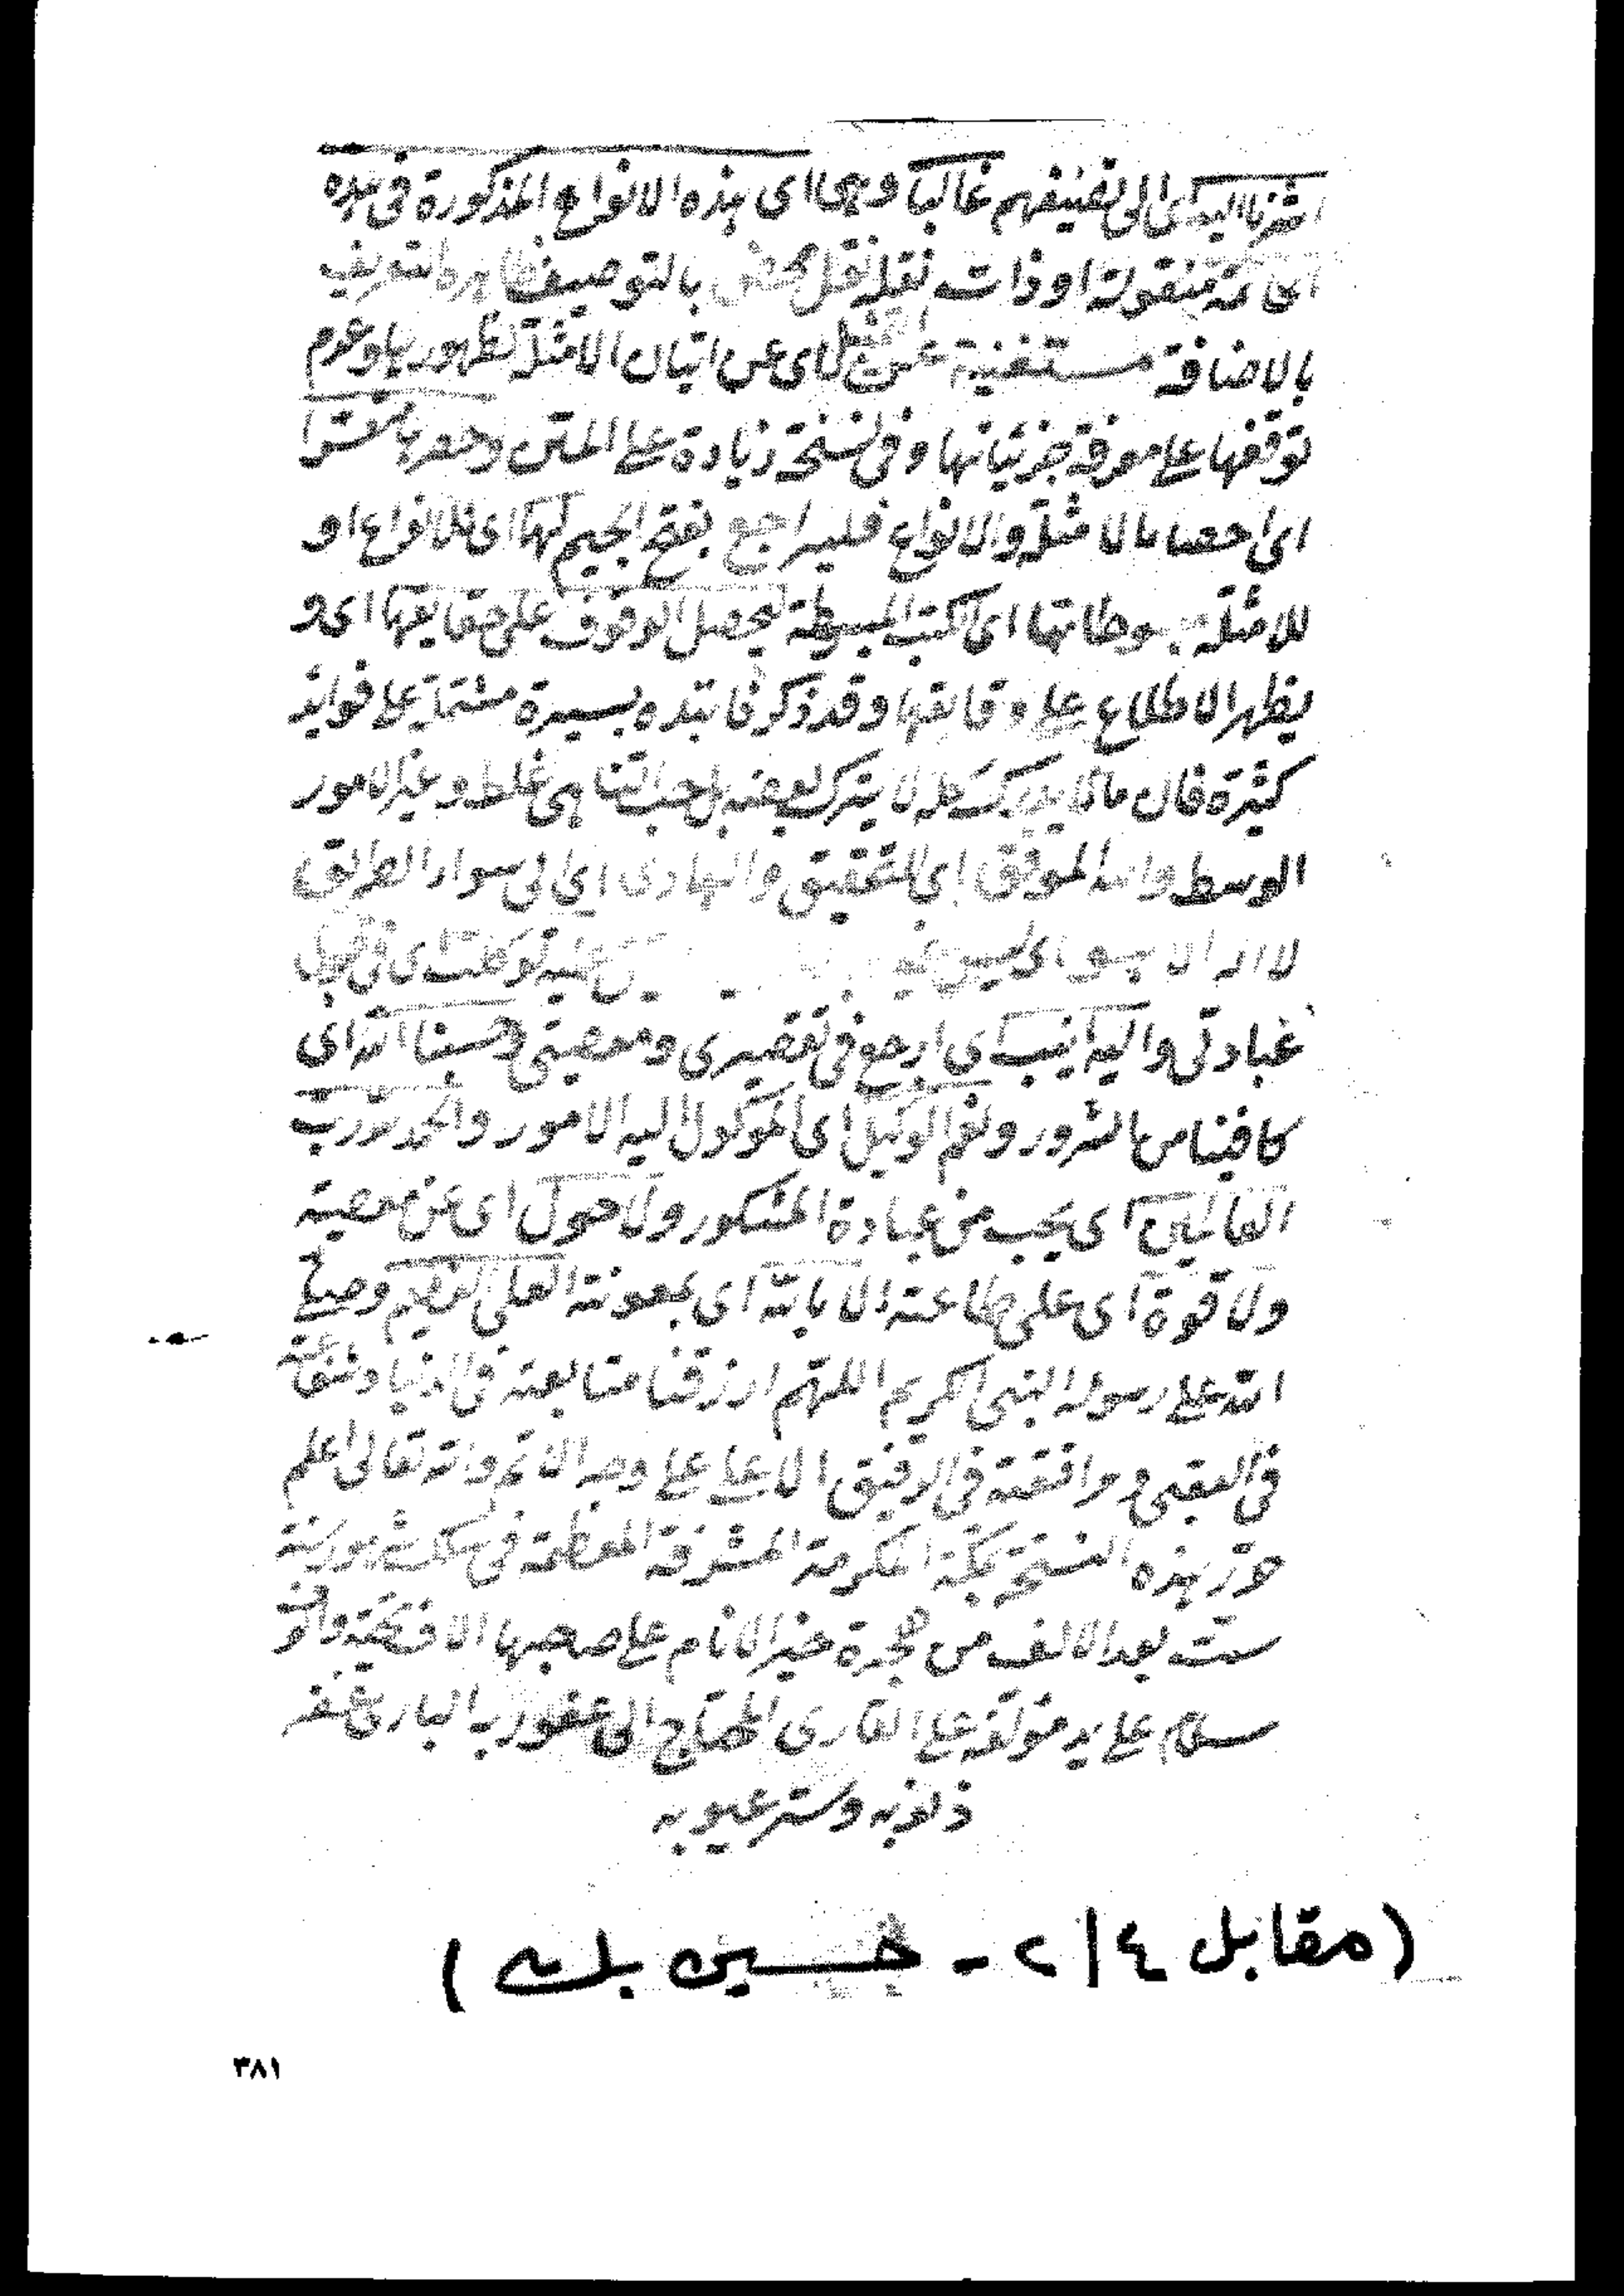 اشرنا اليه اى الى تصنيفهم غالبا وهى اى هذه الانواع المذكورة فى هذه
الخاتمة منقولة اوذات نقل نقل محض بالتوصيف ظاهرة التعريف
بالاضافة مستغنية عن التمثيل اى عن اتيان الامثلة لظهورها وعدم
توقفها على معرفة جزئياتها وفى نسخة زيادة على المتن وحصرها متعسر
اى احصاها بالامثلة والانواع فليراجع بفتح الجيم لها اى للانواع او
للامثلة مبسوطاتها اى الكتب المبسوطة ليحصل الوقوف على حقايقها اى و
يظهر الاطلاع على دقايقها وقد ذكرنا نبذة يسيرة مشتملة على فوايد
كثيرة فان ما لا يدرك كله لا يترك بعضه بل حب التناهى غلط وخير الامور
الوسط والله الموفق اى للتحقيق والهادى اى الى سواء الطريق
لا اله الا هو اى ليس عليه توكلت اى فى قبول
عبادتى واليه انيب اى ارجع فى تقصيرى ومعصيتى وحسبنا الله اى
كافينا من الشرور ونعم الوكيل اى الموكول اليه الامور والحمد لله رب
العالمين اى يجب من عبادة المشكور ولا حول اى عن معصية
ولا قوة اى على طاعته الا بالله اى بمعونته العلى العظيم وصلى
الله على رسوله النبى الكريم اللهم ارزقنا متابعته فى الدنيا وشفاعته
فى العقبى وموافقته فى الرفيق الاعلى على وجه الاتم والله تعالى اعلم
حرر هذه النسخة بمكة المكرمة المشرفة المعظمة فى سنة
ست بعد الالف من هجرة خير الانام على صاحبها الف تحية والف
سلام على يد مؤلفه على القارى المحتاج الى عفو ربه البارى غفر
ذنوبه وستر عيوبه
(مقابل ٤/٢ - حسين بلى)
٣٨١